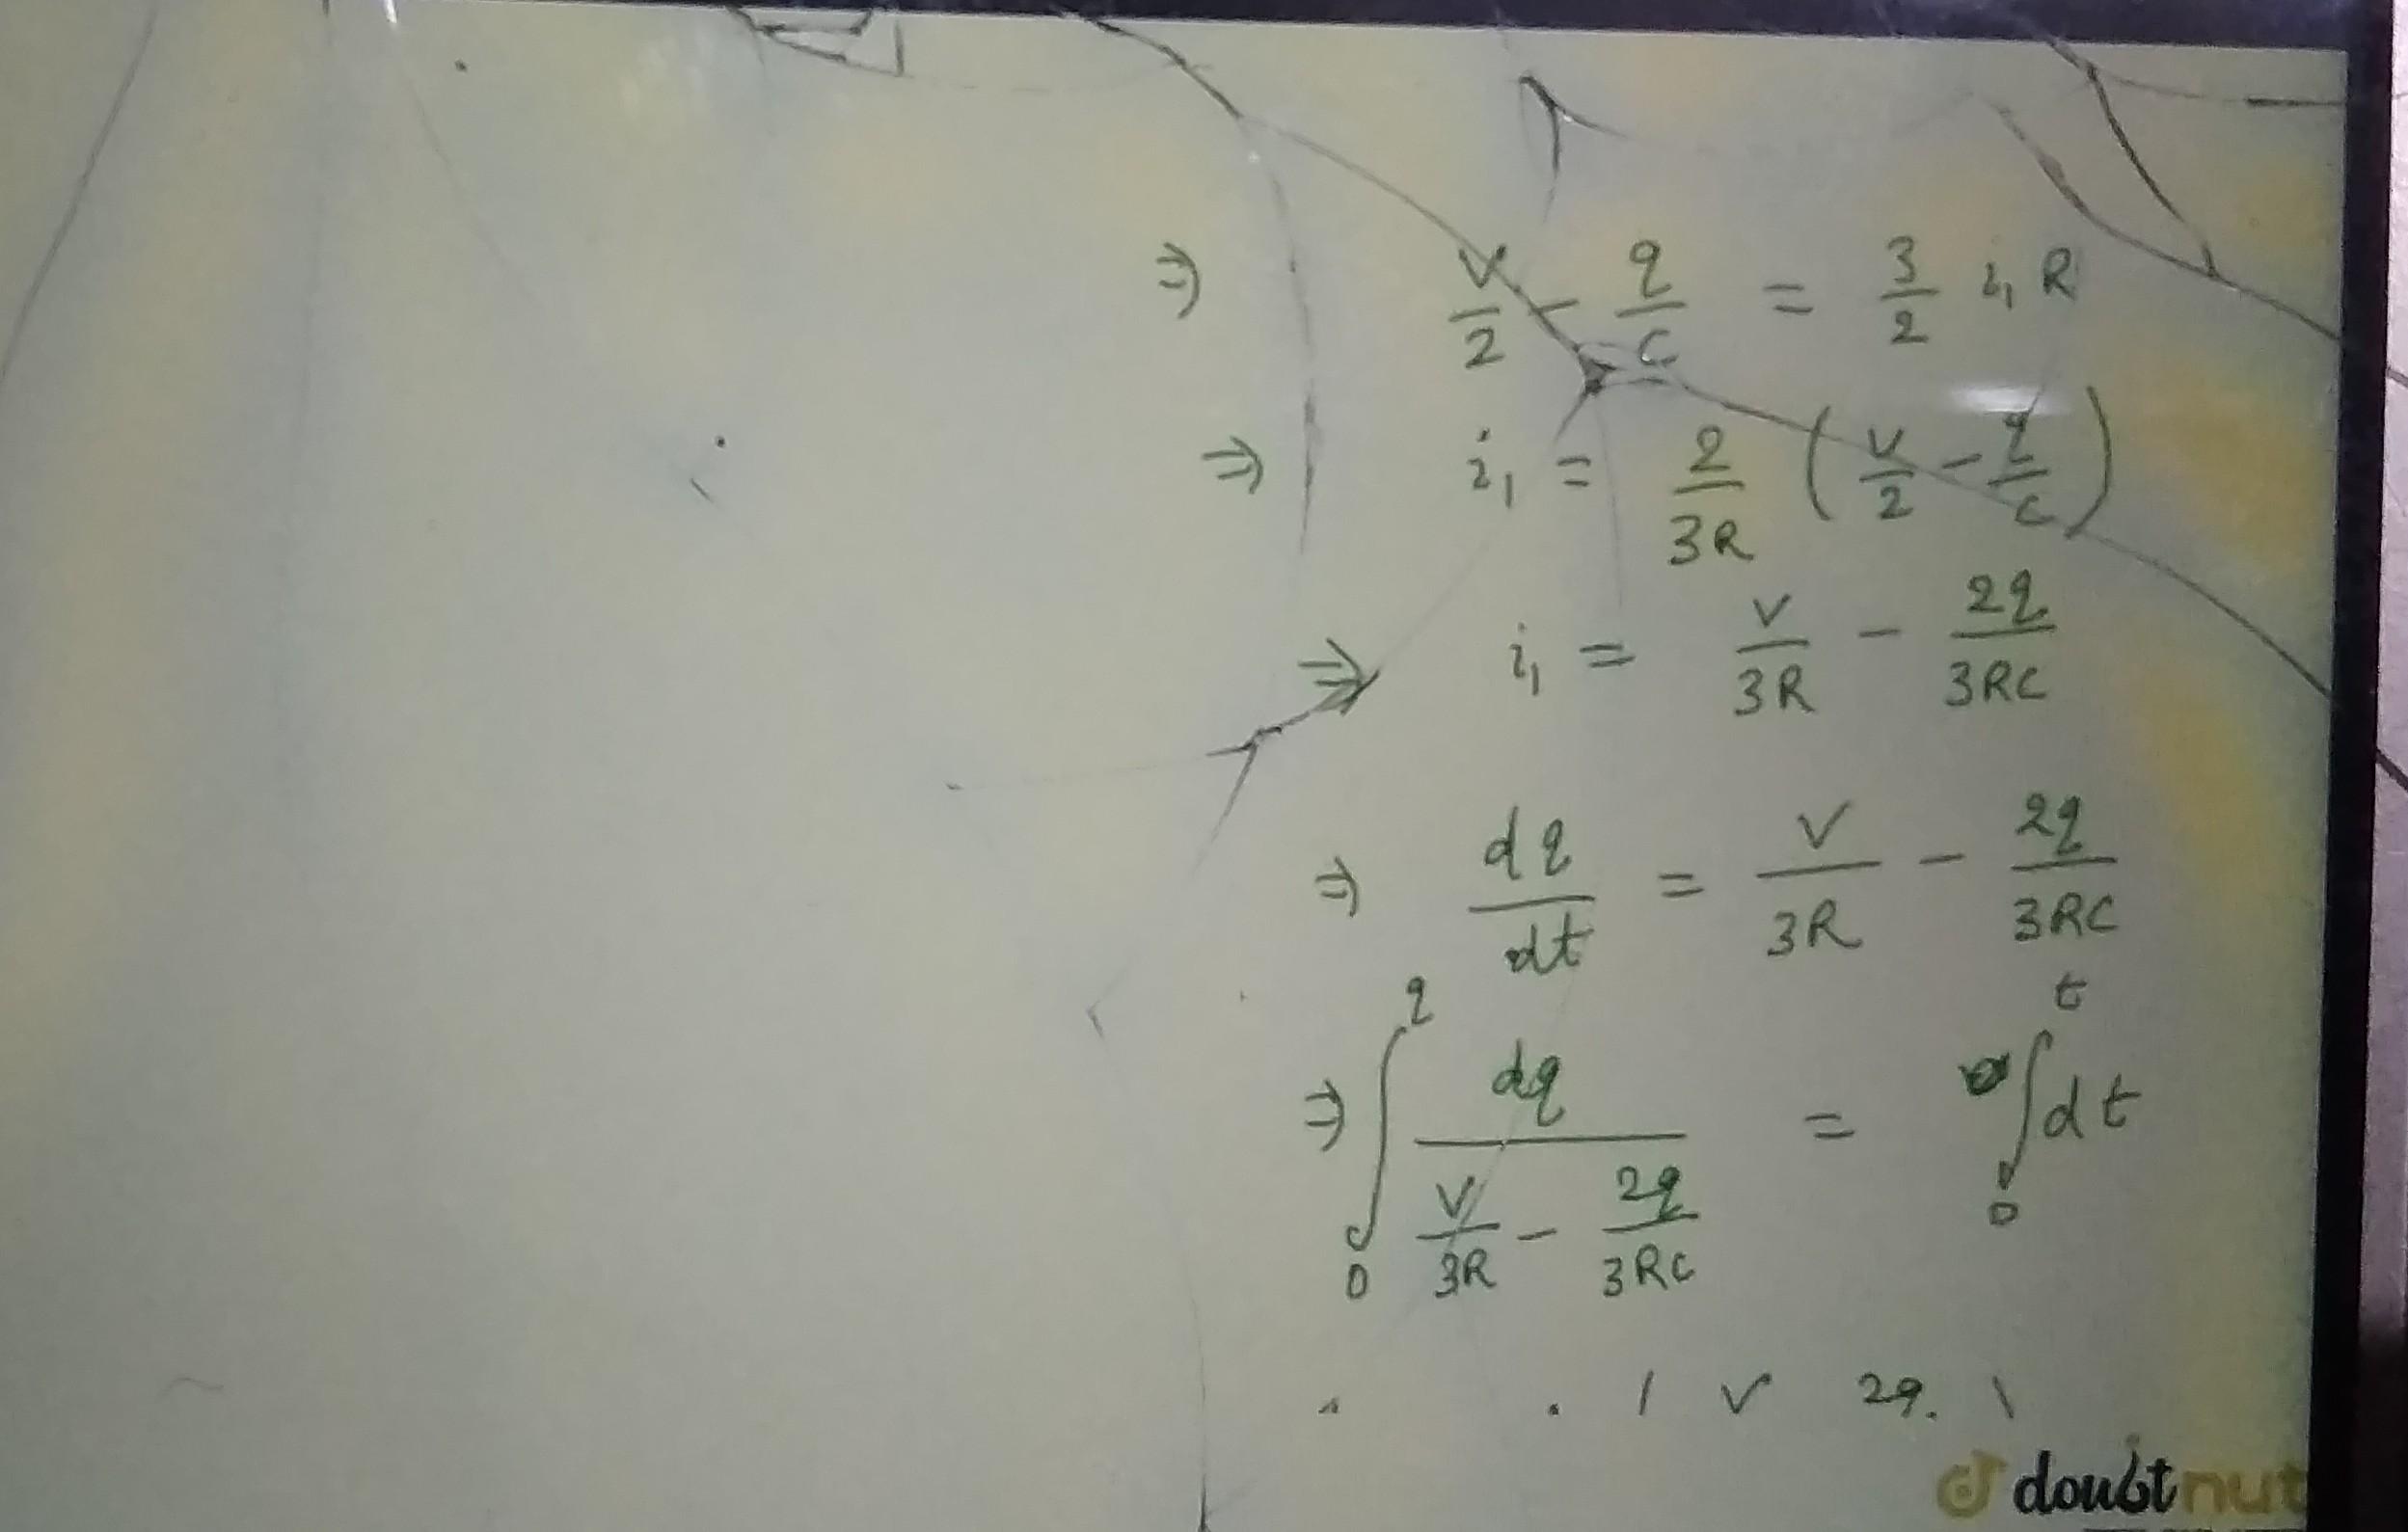 ⇒ V/2 - q/C = 3/2 i₁ R
⇒ i₁ = 2/3R (V/2 - q/C)
⇒ i₁ = V/3R - 2q/3RC
⇒ dq/dt = V/3R - 2q/3RC
⇒ ∫₀^q dq/(V/3R - 2q/3RC) = ∫₀^t dt
V 2q
doubtnut